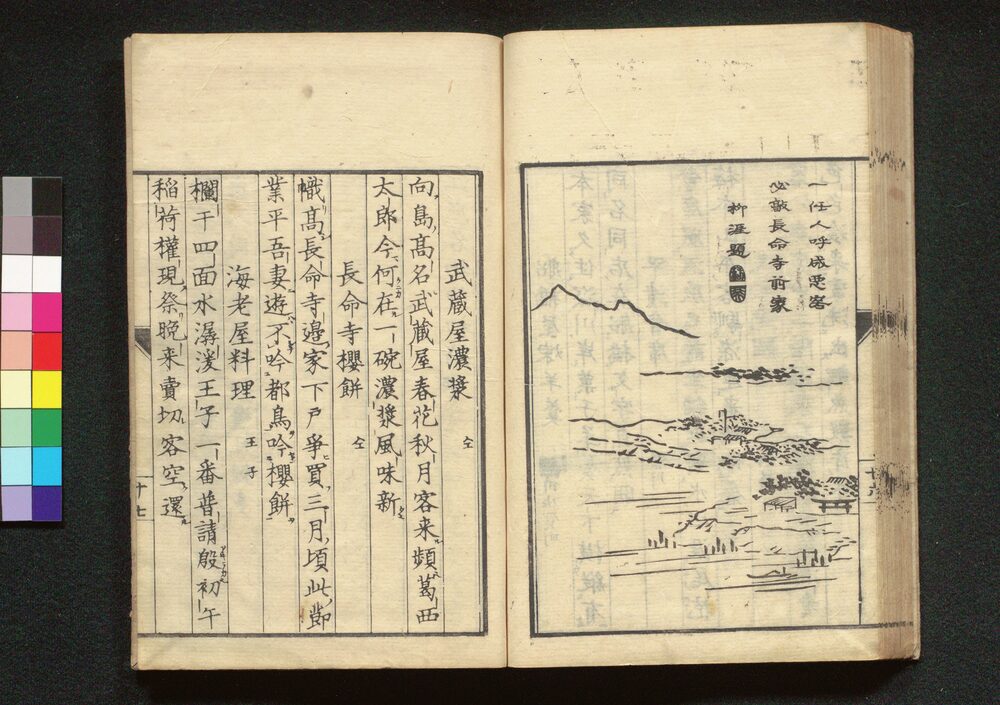 一任人呼成惡客
必敲長命寺前家
柳湾題
武蔵屋濃漿 仝
向島高名武蔵屋春花秋月客来頻葛西
太郎今何在一碗濃漿風味新
長命寺櫻餅 仝
幟高長命寺邊家下戸爭買三月頃此節
業平吾妻遊不吟都鳥吟櫻餅
海老屋料理 王子
欄干四面水潺湲王子一番普請殷初午
稲荷權現祭晩来賣切客空還
十七